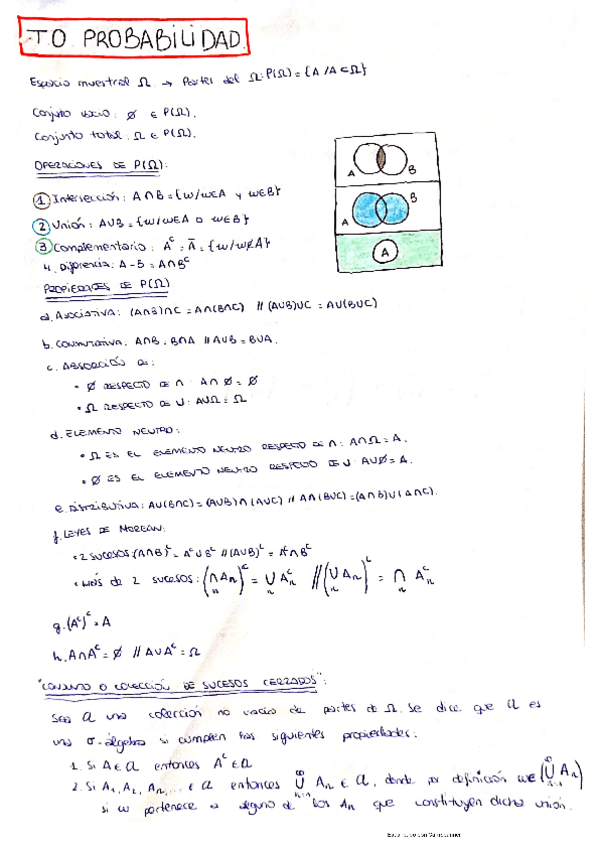 T.0 PROBABILIDAD.
Espacio muestral Ω → Partes del Ω: P(Ω) = {A / A ⊂ Ω}
Conjunto vacío: ∅ ∈ P(Ω).
Conjunto total: Ω ∈ P(Ω).
OPERACIONES DE P(Ω):
1 Intersección: A∩B = {w/w∈A y w∈B}
2 Unión: A∪B = {w/w∈A o w∈B}
3 Complementario: Aᶜ = Ā = {w/w∉A}
4. Diferencia: A - B = A∩Bᶜ
A B
A B
A
PROPIEDADES DE P(Ω)
a. Asociativa: (A∩B)∩C = A∩(B∩C) // (A∪B)∪C = A∪(B∪C)
b. Conmutativa. A∩B = B∩A // A∪B = B∪A.
c. ABSORCIÓN de:
• ∅ RESPECTO DE ∩: A∩∅ = ∅
• Ω RESPECTO DE ∪: A∪Ω = Ω
d. ELEMENTO NEUTRO:
• Ω ES EL ELEMENTO NEUTRO RESPECTO DE ∩: A∩Ω = A.
• ∅ ES EL ELEMENTO NEUTRO RESPECTO DE ∪: A∪∅ = A.
e. DISTRIBUTIVA: A∪(B∩C) = (A∪B)∩(A∪C) // A∩(B∪C) = (A∩B)∪(A∩C).
f. LEYES DE MORGAN:
• 2 SUCESOS: (A∩B)ᶜ = Aᶜ∪Bᶜ // (A∪B)ᶜ = Aᶜ∩Bᶜ
• más de 2 sucesos: (∩ₙ Aₙ)ᶜ = ∪ₙ Aₙᶜ // (∪ₙ Aₙ)ᶜ = ∩ₙ Aₙᶜ
g. (Aᶜ)ᶜ = A
h. A∩Aᶜ = ∅ // A∪Aᶜ = Ω
"CONJUNTO O COLECCIÓN DE SUCESOS CERRADOS":
Sea 𝒜 una colección no vacía de partes de Ω. Se dice que 𝒜 es
una σ-álgebra si cumplen las siguientes propiedades:
1. Si A ∈ 𝒜 entonces Aᶜ ∈ 𝒜
2. Si A₁, A₂, Aₙ,... ∈ 𝒜 entonces ∪ Aₙ ∈ 𝒜, donde por definición w ∈ (∪ Aₙ)
si w pertenece a alguno de los Aₙ que constituyen dicha unión.